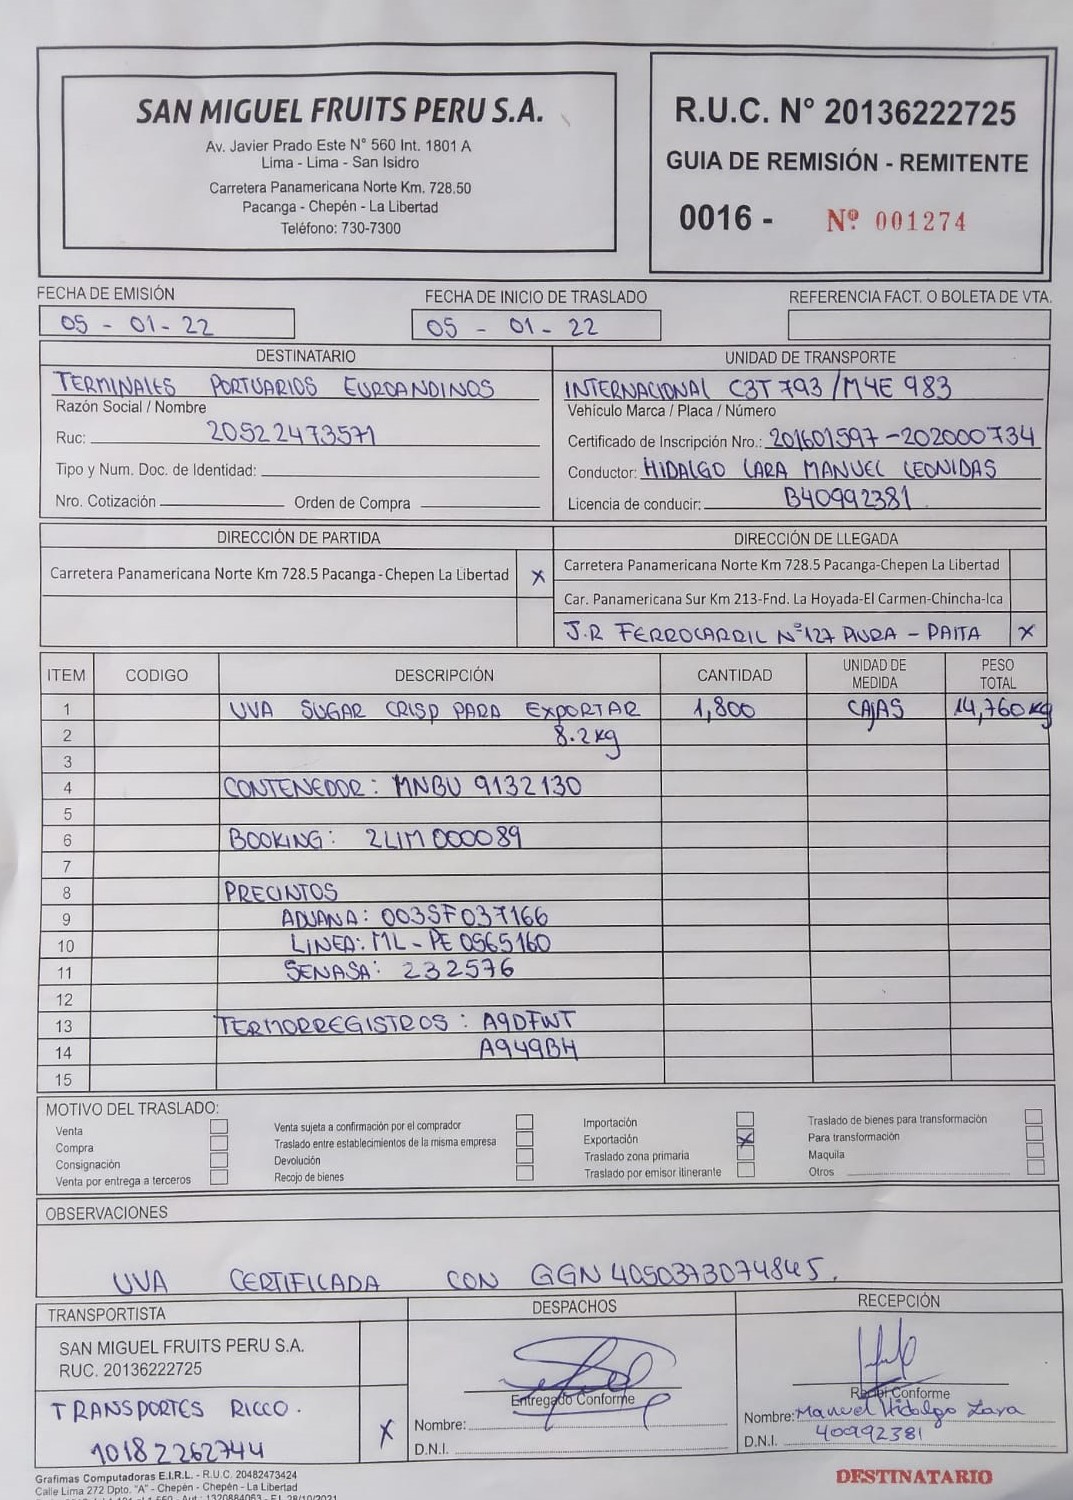 SAN MIGUEL FRUITS PERU S.A.
Av. Javier Prado Este N° 560 Int. 1801 A
Lima - Lima - San Isidro
Carretera Panamericana Norte Km. 728.50
Pacanga - Chepén - La Libertad
Teléfono: 730-7300
R.U.C. N° 20136222725
GUIA DE REMISIÓN - REMITENTE
0016 - Nº 001274
FECHA DE EMISIÓN
05 - 01 - 22
FECHA DE INICIO DE TRASLADO
05 - 01 - 22
REFERENCIA FACT. O BOLETA DE VTA.
DESTINATARIO
TERMINALES PORTUARIOS EUROANDINOS
Razón Social / Nombre
Ruc: 20522473571
Tipo y Num. Doc. de Identidad:
Nro. Cotización Orden de Compra
UNIDAD DE TRANSPORTE
INTERNACIONAL C3T 793 / M4E 983
Vehículo Marca / Placa / Número
Certificado de Inscripción Nro.: 201601597 - 202000734
Conductor: HIDALGO LARA MANUEL LEONIDAS
Licencia de conducir: B40992381
DIRECCIÓN DE PARTIDA
Carretera Panamericana Norte Km 728.5 Pacanga - Chepen La Libertad X
DIRECCIÓN DE LLEGADA
Carretera Panamericana Norte Km 728.5 Pacanga-Chepen La Libertad
Car. Panamericana Sur Km 213-Fnd. La Hoyada-El Carmen-Chincha-Ica
J.R FERROCARRIL N°127 PIURA - PAITA X
ITEM CODIGO DESCRIPCIÓN CANTIDAD UNIDAD DE MEDIDA PESO TOTAL
1 UVA SUGAR CRISP PARA EXPORTAR 1,800 CAJAS 14,760 kg
2 8.2 kg
3
4 CONTENEDOR: MNBU 9132130
5
6 BOOKING: 2LIM000089
7
8 PRECINTOS
9 ADUANA: 003SF037166
10 LINEA: ML - PE 0565160
11 SENASA: 232576
12
13 TERMORREGISTROS: A9DFWT
14 A949BH
15
MOTIVO DEL TRASLADO:
Venta
Compra
Consignación
Venta por entrega a terceros
Venta sujeta a confirmación por el comprador
Traslado entre establecimientos de la misma empresa
Devolución
Recojo de bienes
Importación
Exportación X
Traslado zona primaria
Traslado por emisor itinerante
Traslado de bienes para transformación
Para transformación
Maquila
Otros
OBSERVACIONES
UVA CERTIFICADA CON GGN 4050373074845.
TRANSPORTISTA
SAN MIGUEL FRUITS PERU S.A.
RUC. 20136222725
TRANSPORTES RICCO.
10182262744 X
DESPACHOS
Entregado Conforme
Nombre:
D.N.I.
RECEPCIÓN
Recibí Conforme
Nombre: Manuel Hidalgo Lara
D.N.I. 40992381
Grafimas Computadoras E.I.R.L. - R.U.C. 20482473424
Calle Lima 272 Dpto. "A" - Chepén - Chepén - La Libertad
DESTINATARIO